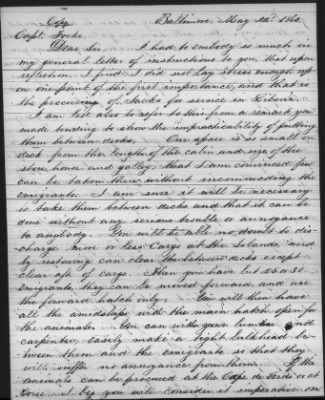 Copy Baltimore May 22d 1860.
Capt. Cooke
Dear Sir, I had to embody so much in
my general letter of instructions to you, that upon
reflection, I find I did not lay stress enough up
on one point of the first importance, and that is
the procuring of Jacks for service in Liberia.
I am led also to refer to this from a remark you
made tending to show the impracticability of putting
them between decks. Our space is so small on
deck from the length of the cabin and size of the
store house and galley, that I am convinced few
can be taken there without incommoding the
emigrants. I am sure it will be necessary
to take them between decks and that it can be
done without any serious trouble or annoyance
to anybody. You will be able no doubt to dis-
charge more or less Cargo at the Islands, and
by restowing can clear the between decks except
clear of cargo. Then you have but 25 or 30
Emigrants they can be moved forward and use
the forward hatch only. You will then have
all the midships with the main hatch open for
the animals. You can with your lumber and
carpenter, easily make a tight bulkhead be
tween them and the emigrants so that they
will suffer no annoyance from them. If the
animals can be procured at the Cape de Verds or at
I beg you will consider it imperative on